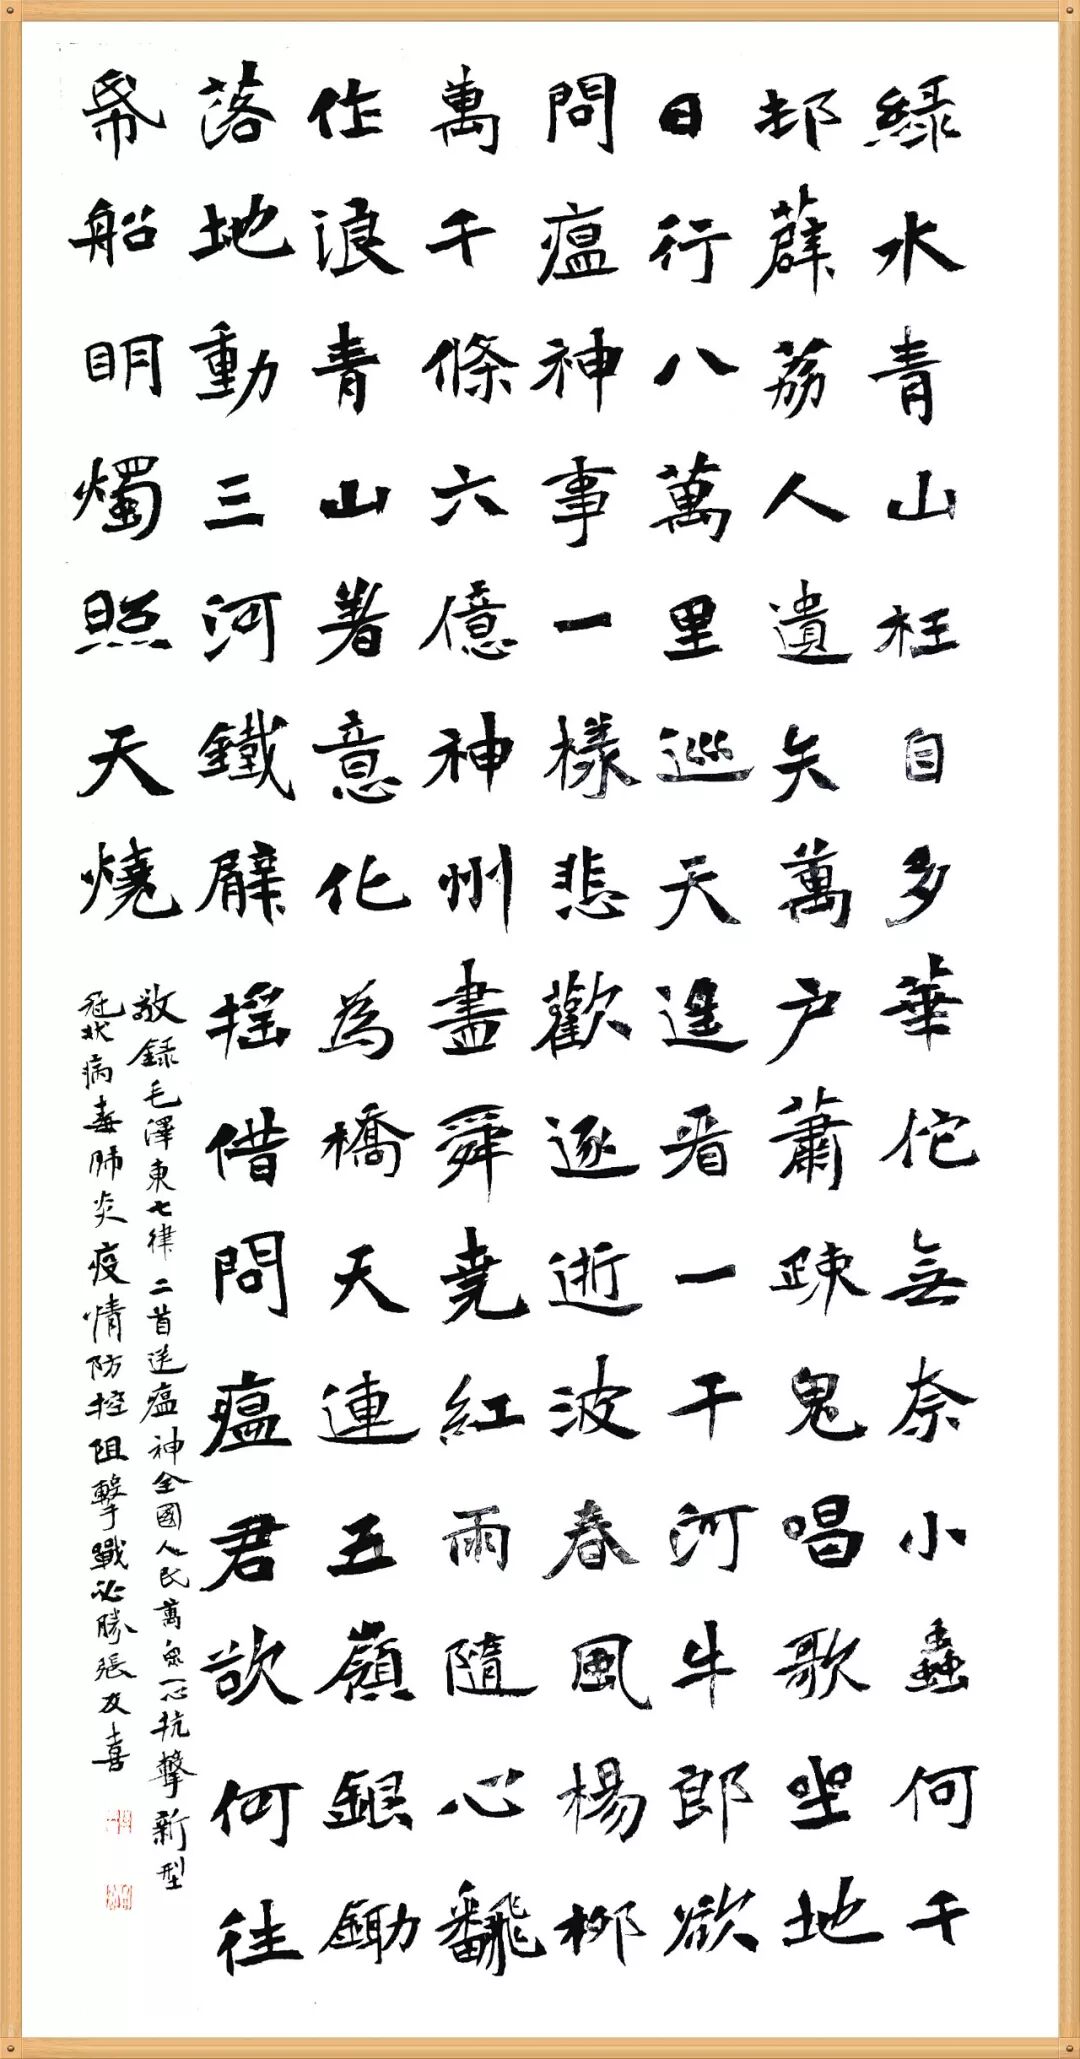 綠水青山枉自多華佗無奈小蟲何千
邨薜荔人遺矢萬户蕭疎鬼唱歌坐地
日行八萬里巡天遥看一千河牛郎欲
問瘟神事一樣悲歡逐逝波春風楊柳
萬千條六億神州盡舜堯紅雨隨心飜
作浪青山著意化為橋天連五嶺銀鋤
落地動三河鐵臂摇借問瘟君欲何往
帋船明燭照天燒
敬録毛澤東七律二首送瘟神全國人民萬衆一心抗擊新型
冠狀病毒肺炎疫情防控阻擊戰必勝張友喜